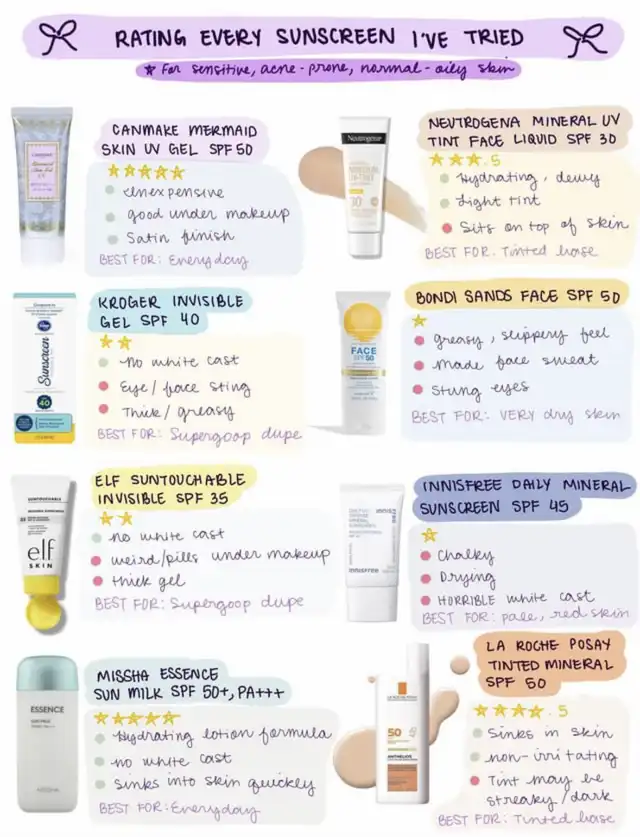 RATING EVERY SUNSCREEN I'VE TRIED
★ For sensitive, acne-prone, normal-oily skin
CANMAKE MERMAID
SKIN UV GEL SPF 50
★★★★★
Inexpensive
good under makeup
Satin finish
BEST FOR: Everyday
NEUTROGENA MINERAL UV
TINT FACE LIQUID SPF 30
★★★.5
Hydrating, dewy
Light tint
Sits on top of skin
BEST FOR: Tinted base
Neutrogena
30
KROGER INVISIBLE
GEL SPF 40
★★
No white cast
Eye/face sting
Thick/greasy
BEST FOR: Supergoop dupe
Sunscreen
40
BONDI SANDS FACE SPF 50
★
greasy, slippery feel
Made face sweat
Stung eyes
BEST FOR: VERY dry skin
FACE
SPF 50
ELF SUNTOUCHABLE
INVISIBLE SPF 35
★★
no white cast
weird/pills under makeup
thick gel
BEST FOR: Supergoop dupe
SUNTOUCHABLE
elf
SKIN
INNISFREE DAILY MINERAL
SUNSCREEN SPF 45
★
Chalky
Drying
HORRIBLE white cast
BEST FOR: pale, red skin
innisfree
MISSHA ESSENCE
SUN MILK SPF 50+, PA+++
★★★★★
Hydrating lotion formula
no white cast
Sinks into skin quickly
BEST FOR: Everyday
ESSENCE
SUN MILK
LA ROCHE POSAY
TINTED MINERAL
SPF 50
★★★★.5
Sinks in skin
non-irritating
Tint may be
streaky/dark
BEST FOR: Tinted base
LA ROCHE-POSAY
50
ANTHELIOS